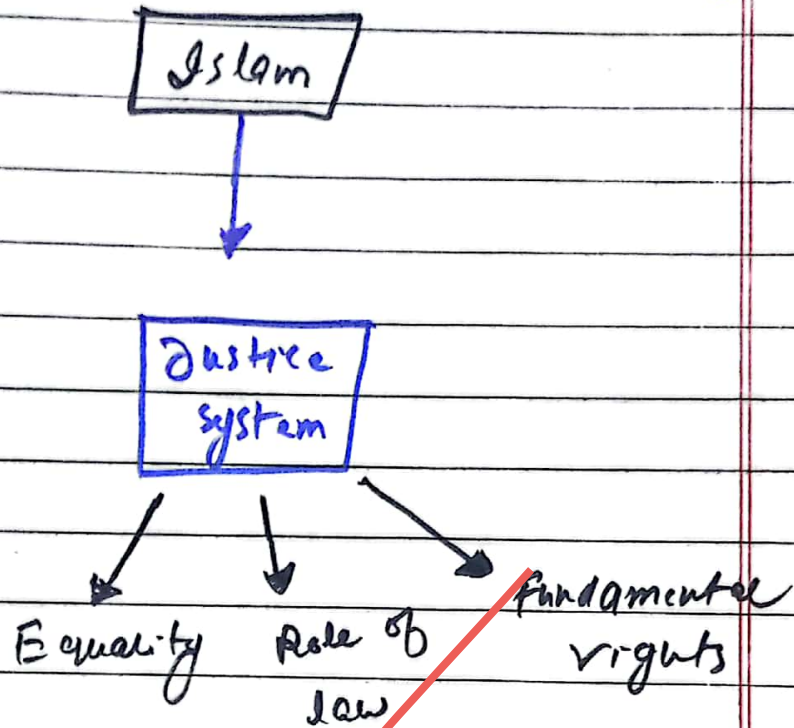 Islam
Justice
system
Equality
Role of
law
fundamental
rights